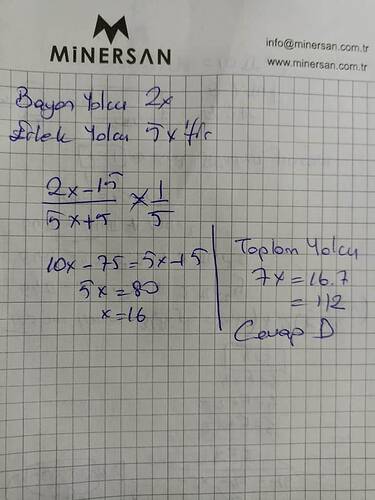 MİNERSAN
info@minersan.com.tr
www.minersan.com.tr
Bayan Yolcu 2x
Erkek Yolcu 5x
2x-15
5x+5
1
5
10x - 75 = 5x+5
5x = 80
x = 16
Toplam Yolcu
7x = 16.7
= 112
Cevap D